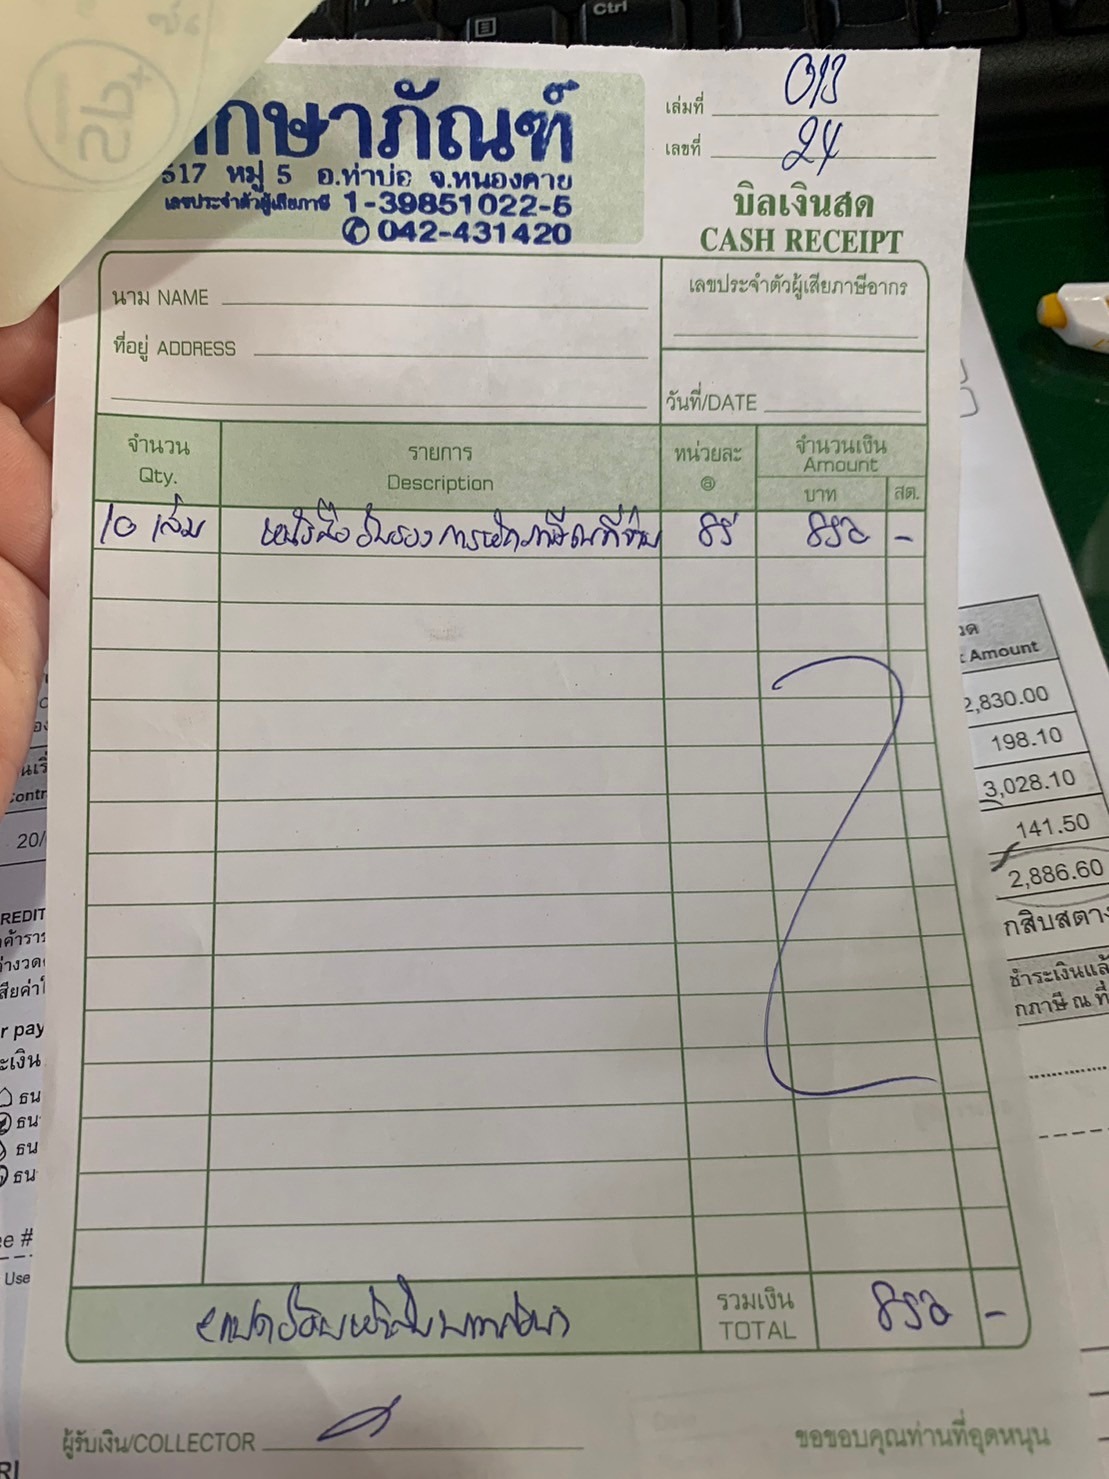 กษาภัณฑ์
517 หมู่ 5 อ.ท่าบ่อ จ.หนองคาย
เลขประจำตัวผู้เสียภาษี 1-39851022-5
042-431420
เล่มที่ 013
เลขที่ 24
บิลเงินสด
CASH RECEIPT
นาม NAME
ที่อยู่ ADDRESS
เลขประจำตัวผู้เสียภาษีอากร
วันที่/DATE
จำนวน Qty.
รายการ Description
หน่วยละ @
จำนวนเงิน Amount
บาท สต.
10 เล่ม หนังสือรับรองการหักภาษีณที่จ่าย 85 850 -
แปดร้อยห้าสิบบาทถ้วน
รวมเงิน TOTAL 850 -
ผู้รับเงิน/COLLECTOR
ขอขอบคุณท่านที่อุดหนุน
Ctrl
Amount
2,830.00
198.10
3,028.10
141.50
2,886.60
กสิบสตาง
ชำระเงินแล้
กภาษี ณ ที่
20/
REDIT
r pay
ะเงิน
ธน
ธน
ธน
ธน
ee #
Use